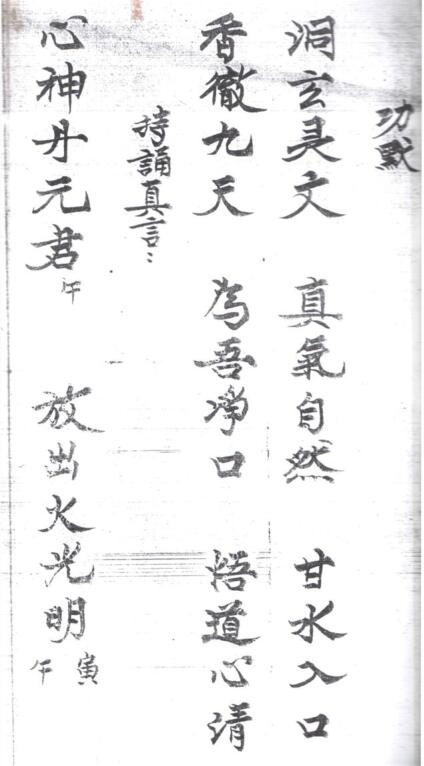 功默
洞玄灵文 真氣自然 甘水入口
香徹九天 為吾净口 悟道心清
持誦真言:
心神丹元君午 放出火光明寅午